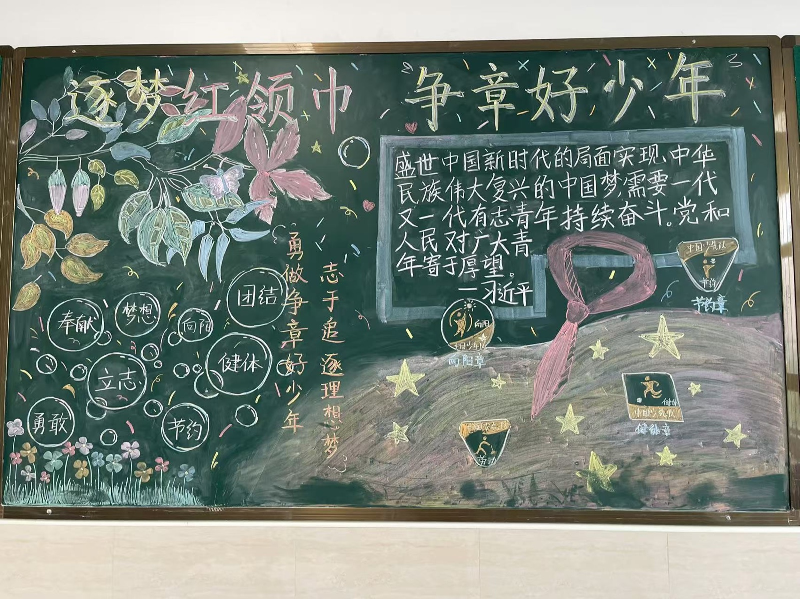 逐梦红领巾 争章好少年
盛世中国新时代的局面实现,中华
民族伟大复兴的中国梦需要一代
又一代有志青年持续奋斗。党和
人民对广大青
年寄于厚望。
—习近平
志于追逐理想梦
勇做争章好少年
奉献
梦想
向阳
团结
立志
健体
勇敢
节约
向阳
向阳章
中国少先队
节约
节约章